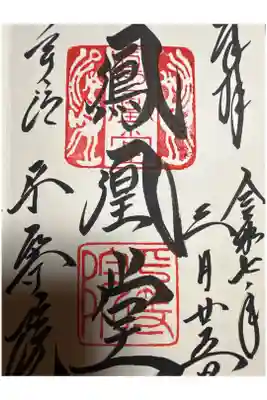 奉拝
令和七年
三月廿五日
鳳凰堂
宇治
平等院